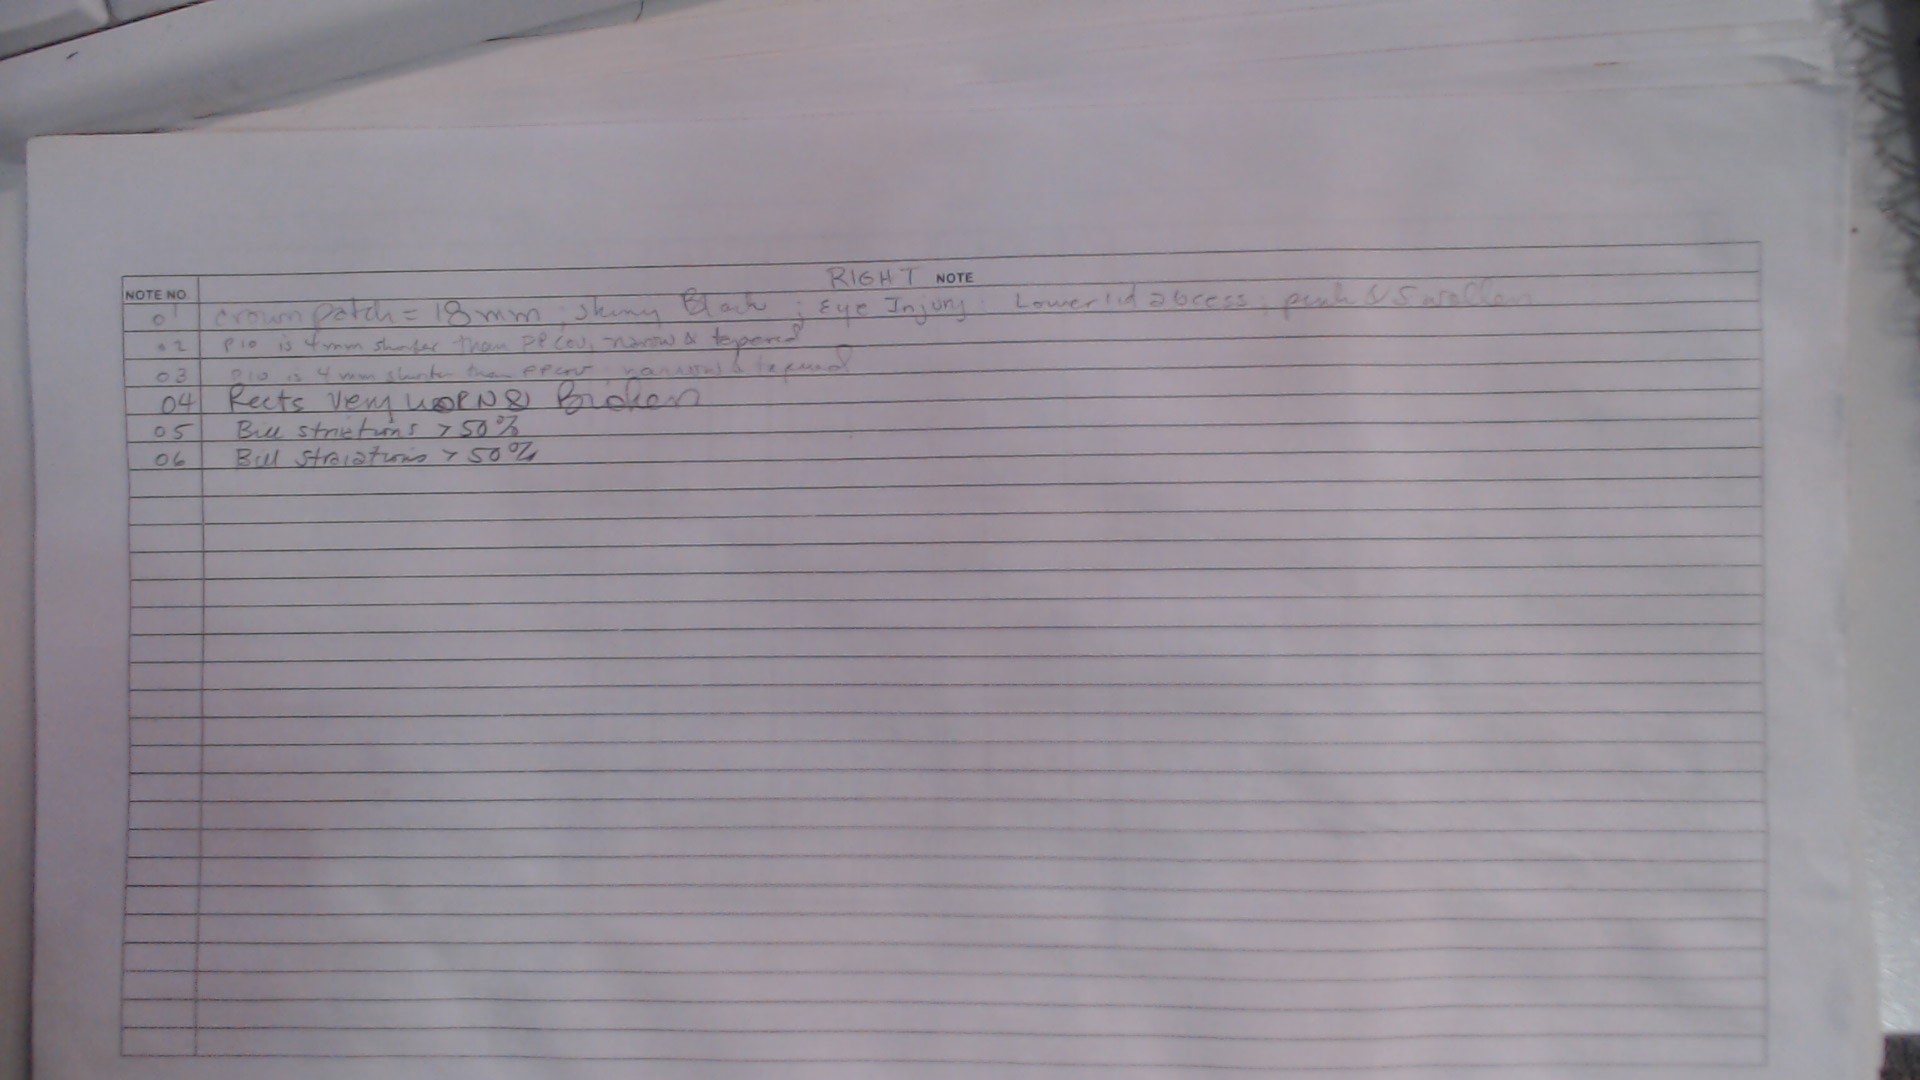 RIGHT NOTE
NOTE NO.
01 crown patch = 18mm; skinny Black; Eye Injury: Lower lid abcess, pink & swollen
02 P10 is 4mm shorter than PPCOV, narrow & tapered
03 P10 is 4mm shorter than PPCOV narrow & tapered
04 Rects very WORN & Broken
05 Bill strictions > 50%
06 Bill Straiations > 50%